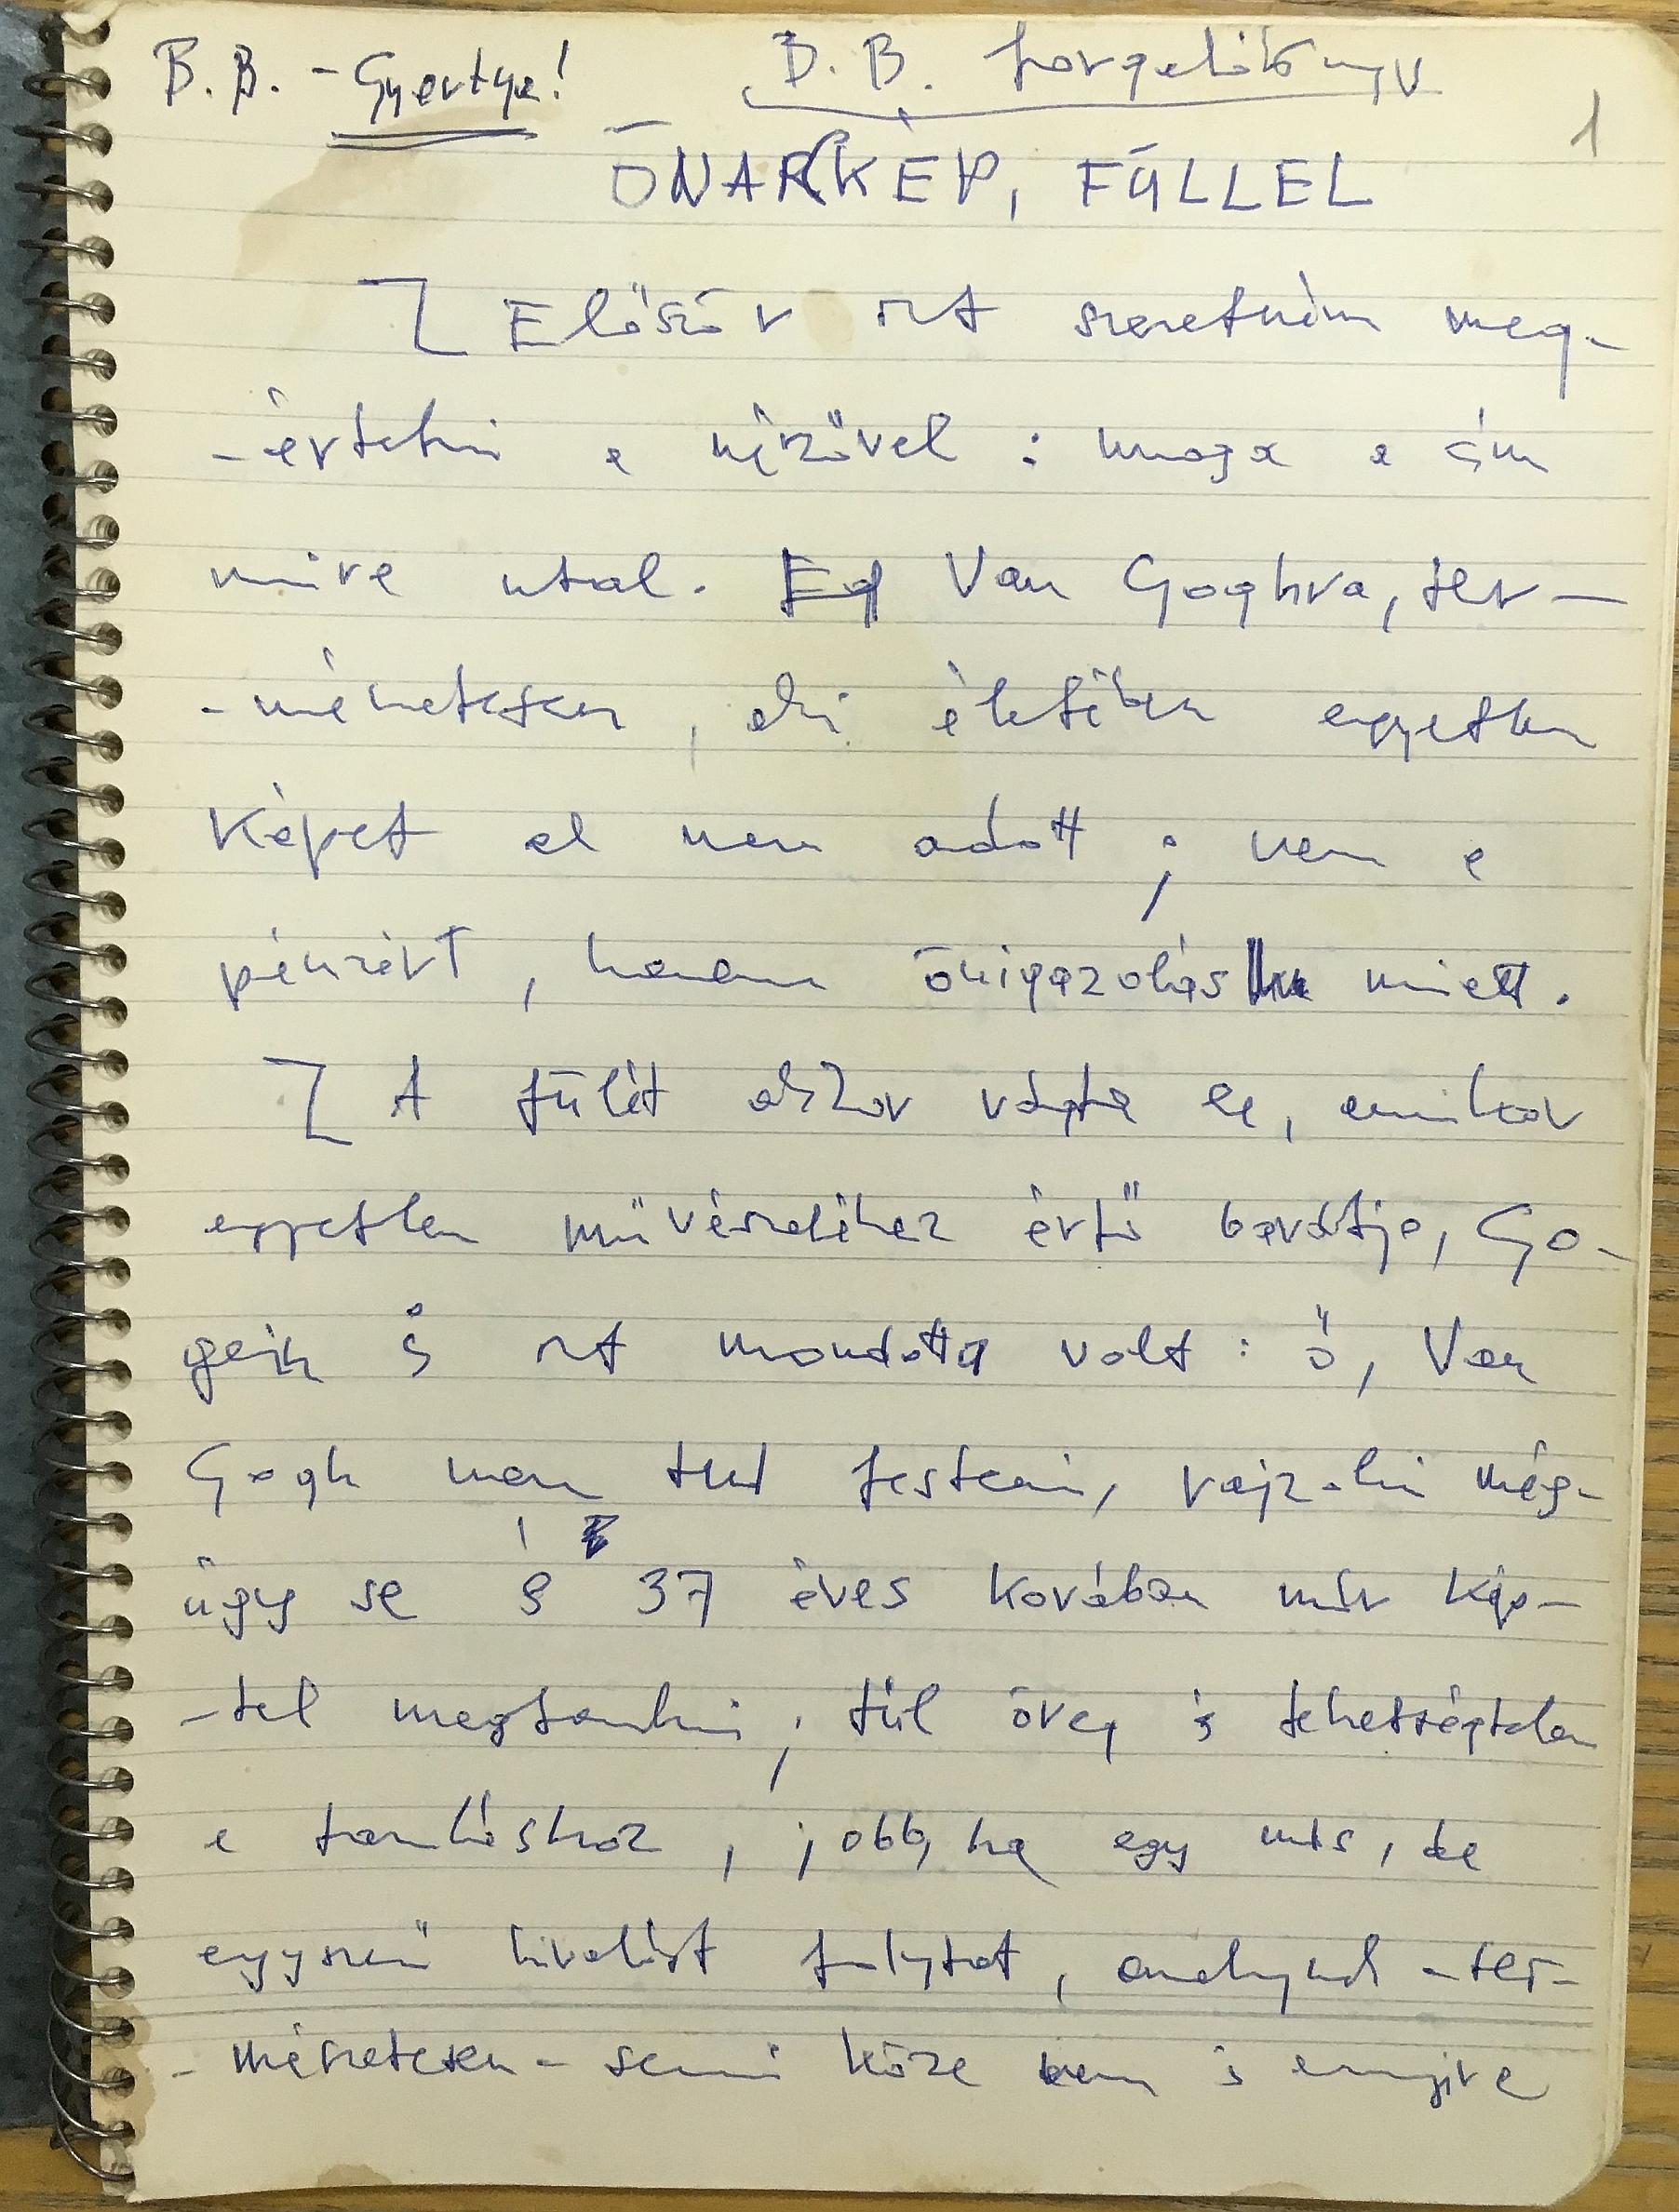 B.B. - Gyertya! B.B. forgatókönyv
1
ÖNARCKÉP, FÜLLEL
Először azt szeretném meg-
-értetni a nézővel : maga a cím
mire utal. Van Goghra, ter-
-mészetesen, aki életében egyetlen
képet el nem adott ; nem a
pénzért, hanem önigazolás miatt.
A fülét akkor vágta le, amikor
egyetlen művészetéhez értő barátja, Go-
gain is azt mondotta volt : ő, Van
Gogh nem tud festeni, rajzolni még-
úgy se s 37 éves korában már kép-
-tel megtanulni ; túl öreg is tehetségtelen
a tanuláshoz, jobb, ha egy más, de
egyszerű hivatást folytat, amelynek - ter-
- mészetesen - semmi köze nem is ennyire